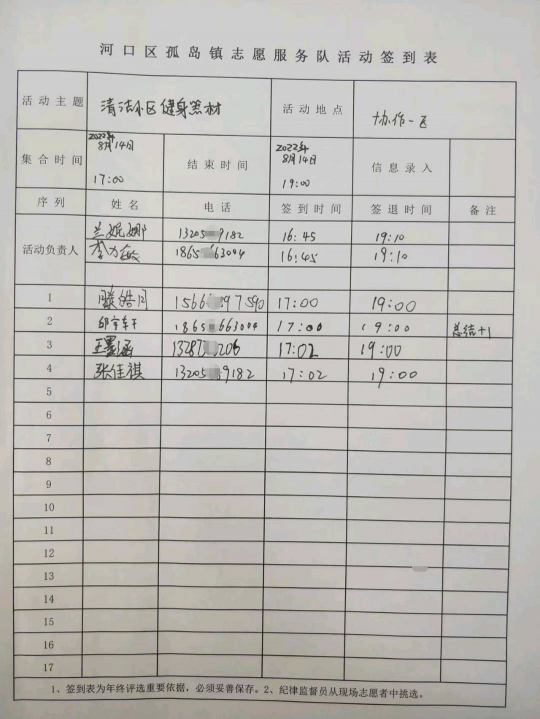 河口区孤岛镇志愿服务队活动签到表
活动主题 清洁小区健身器材 活动地点 协作一区
集合时间 2022年8月14日 17:00 结束时间 2022年8月14日 19:00 信息录入
序列 姓名 电话 签到时间 签退时间 备注
活动负责人 兰妮娜 13205 9182 16:45 19:10
李 1865 663004 16:45 19:10
1 滕皓月 1566 97590 17:00 19:00
2 邱 1865 663004 17:00 19:00 总结+1
3 王墨涵 13287 206 17:02 19:00
4 张佳祺 13205 9182 17:02 19:00
5
6
7
8
9
10
11
12
13
14
15
16
17
1、签到表为年终评选重要依据，必须妥善保存。2、纪律监督员从现场志愿者中挑选。